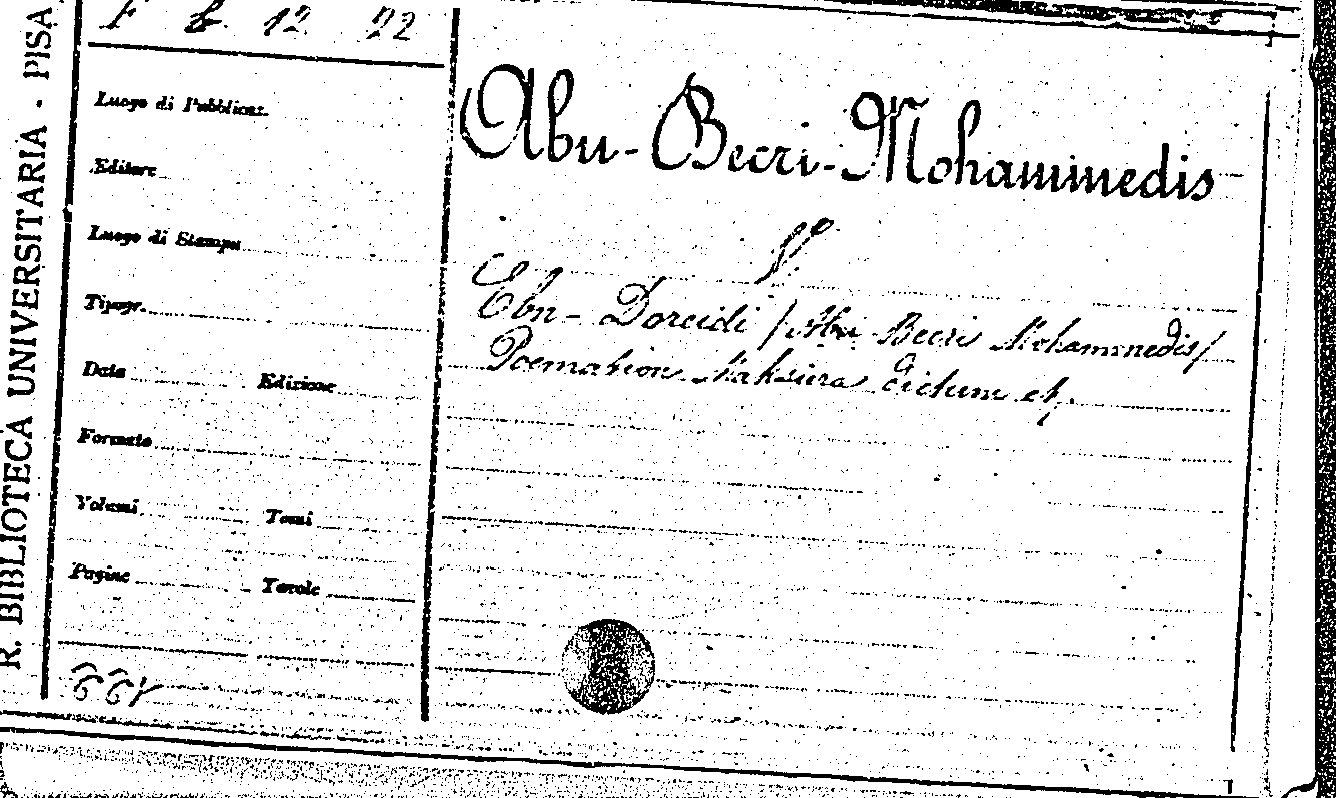 R. BIBLIOTECA UNIVERSITARIA - PISA
F b 12 22
Luogo di Pubblicaz.
Editore
Luogo di Stampa
Tipogr.
Data Edizione
Formato
Volumi Tomi
Pagine Tavole
Abu-Becri-Mohammedis
V.
Ebn-Doreidi / Abu Becri Mohammedis /
Poemation Maksura dictum et